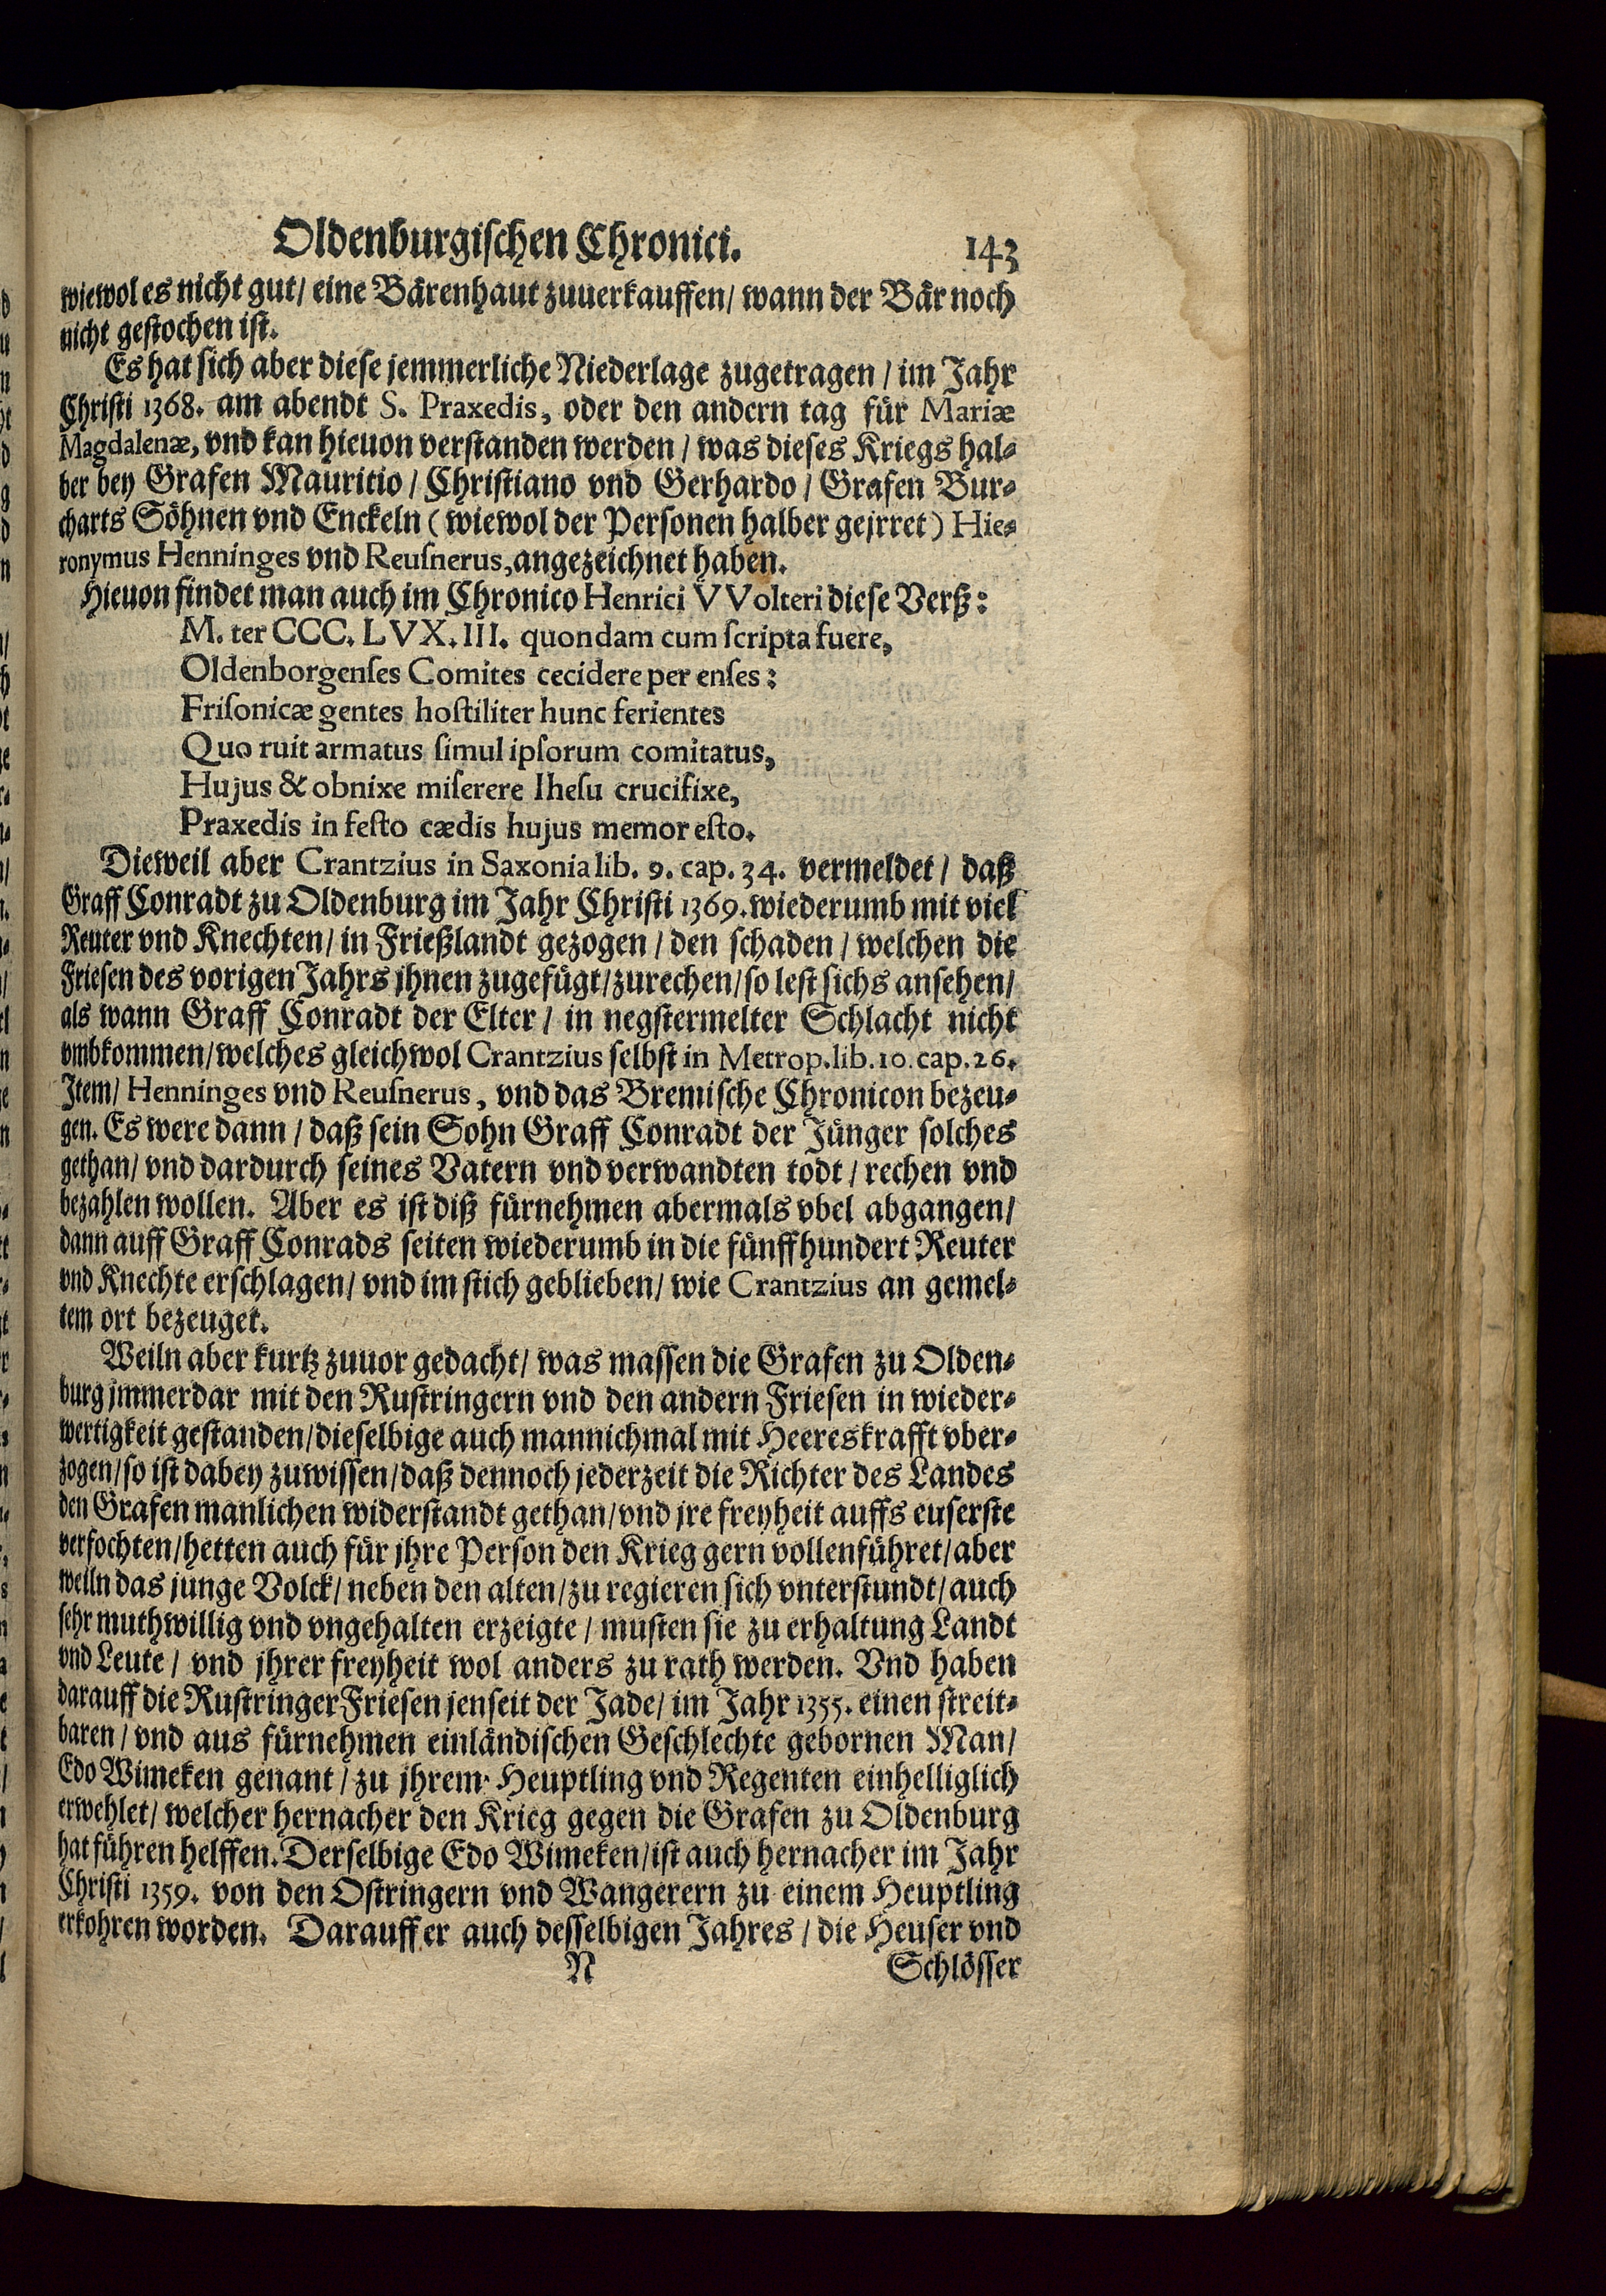 Oldenburgischen Chronici. 143
wiewol es nicht gut / eine Bärenhaut zuuerkauffen / wann der Bär noch
nicht gestochen ist.
Es hat sich aber diese jemmerliche Niederlage zugetragen / im Jahr
Christi 1368. am abendt S. Praxedis, oder den andern tag für Mariæ
Magdalenæ, vnd kan hieuon verstanden werden / was dieses Kriegs hal-
ber bey Grafen Mauritio / Christiano vnd Gerhardo / Grafen Bur-
charts Söhnen vnd Enckeln (wiewol der Personen halber gejrret) Hie-
ronymus Henninges vnd Reuſnerus, angezeichnet haben.
Hieuon findet man auch im Chronico Henrici VVolteri diese Verß:
M. ter CCC. LVX. III. quondam cum ſcripta fuere,
Oldenborgenſes Comites cecidere per enſes:
Friſonicæ gentes hoſtiliter hunc ferientes
Quo ruit armatus ſimul ipſorum comitatus,
Hujus & obnixe miſerere Iheſu crucifixe,
Praxedis in feſto cædis hujus memor eſto.
Dieweil aber Crantzius in Saxonia lib. 9. cap. 34. vermeldet / daß
Graff Conradt zu Oldenburg im Jahr Christi 1369. wiederumb mit viel
Reuter vnd Knechten / in Frießlandt gezogen / den schaden / welchen die
Friesen des vorigen Jahrs jhnen zugefügt / zurechen / so lest sichs ansehen /
als wann Graff Conradt der Elter / in negstermelter Schlacht nicht
vmbkommen / welches gleichwol Crantzius selbst in Metrop. lib. 10. cap. 26.
Item / Henninges vnd Reuſnerus, vnd das Bremische Chronicon bezeu-
gen. Es were dann / daß sein Sohn Graff Conradt der Jünger solches
gethan / vnd dardurch seines Vatern vnd verwandten todt / rechen vnd
bezahlen wollen. Aber es ist diß fürnehmen abermals vbel abgangen /
dann auff Graff Conrads seiten wiederumb in die fünffhundert Reuter
vnd Knechte erschlagen / vnd im stich geblieben / wie Crantzius an gemel-
tem ort bezeuget.
Weiln aber kurtz zuuor gedacht / was massen die Grafen zu Olden-
burg jmmerdar mit den Rustringern vnd den andern Friesen in wieder-
wertigkeit gestanden / dieselbige auch mannichmal mit Heereskrafft vber-
zogen / so ist dabey zuwissen / daß dennoch jederzeit die Richter des Landes
den Grafen manlichen widerstandt gethan / vnd jre freyheit auffs euserste
verfochten / hetten auch für jhre Person den Krieg gern vollenführet / aber
weiln das junge Volck / neben den alten / zu regieren sich vnterstundt / auch
sehr muthwillig vnd vngehalten erzeigte / musten sie zu erhaltung Landt
vnd Leute / vnd jhrer freyheit wol anders zu rath werden. Vnd haben
darauff die Rustringer Friesen jenseit der Jade / im Jahr 1355. einen streit-
baren / vnd aus fürnehmen einländischen Geschlechte gebornen Man /
Edo Wimeken genant / zu jhrem Heuptling vnd Regenten einhelliglich
erwehlet / welcher hernacher den Krieg gegen die Grafen zu Oldenburg
hat führen helffen. Derselbige Edo Wimeken / ist auch hernacher im Jahr
Christi 1359. von den Ostringern vnd Wangerern zu einem Heuptling
erkohren worden. Darauff er auch desselbigen Jahres / die Heuser vnd
N Schlösser